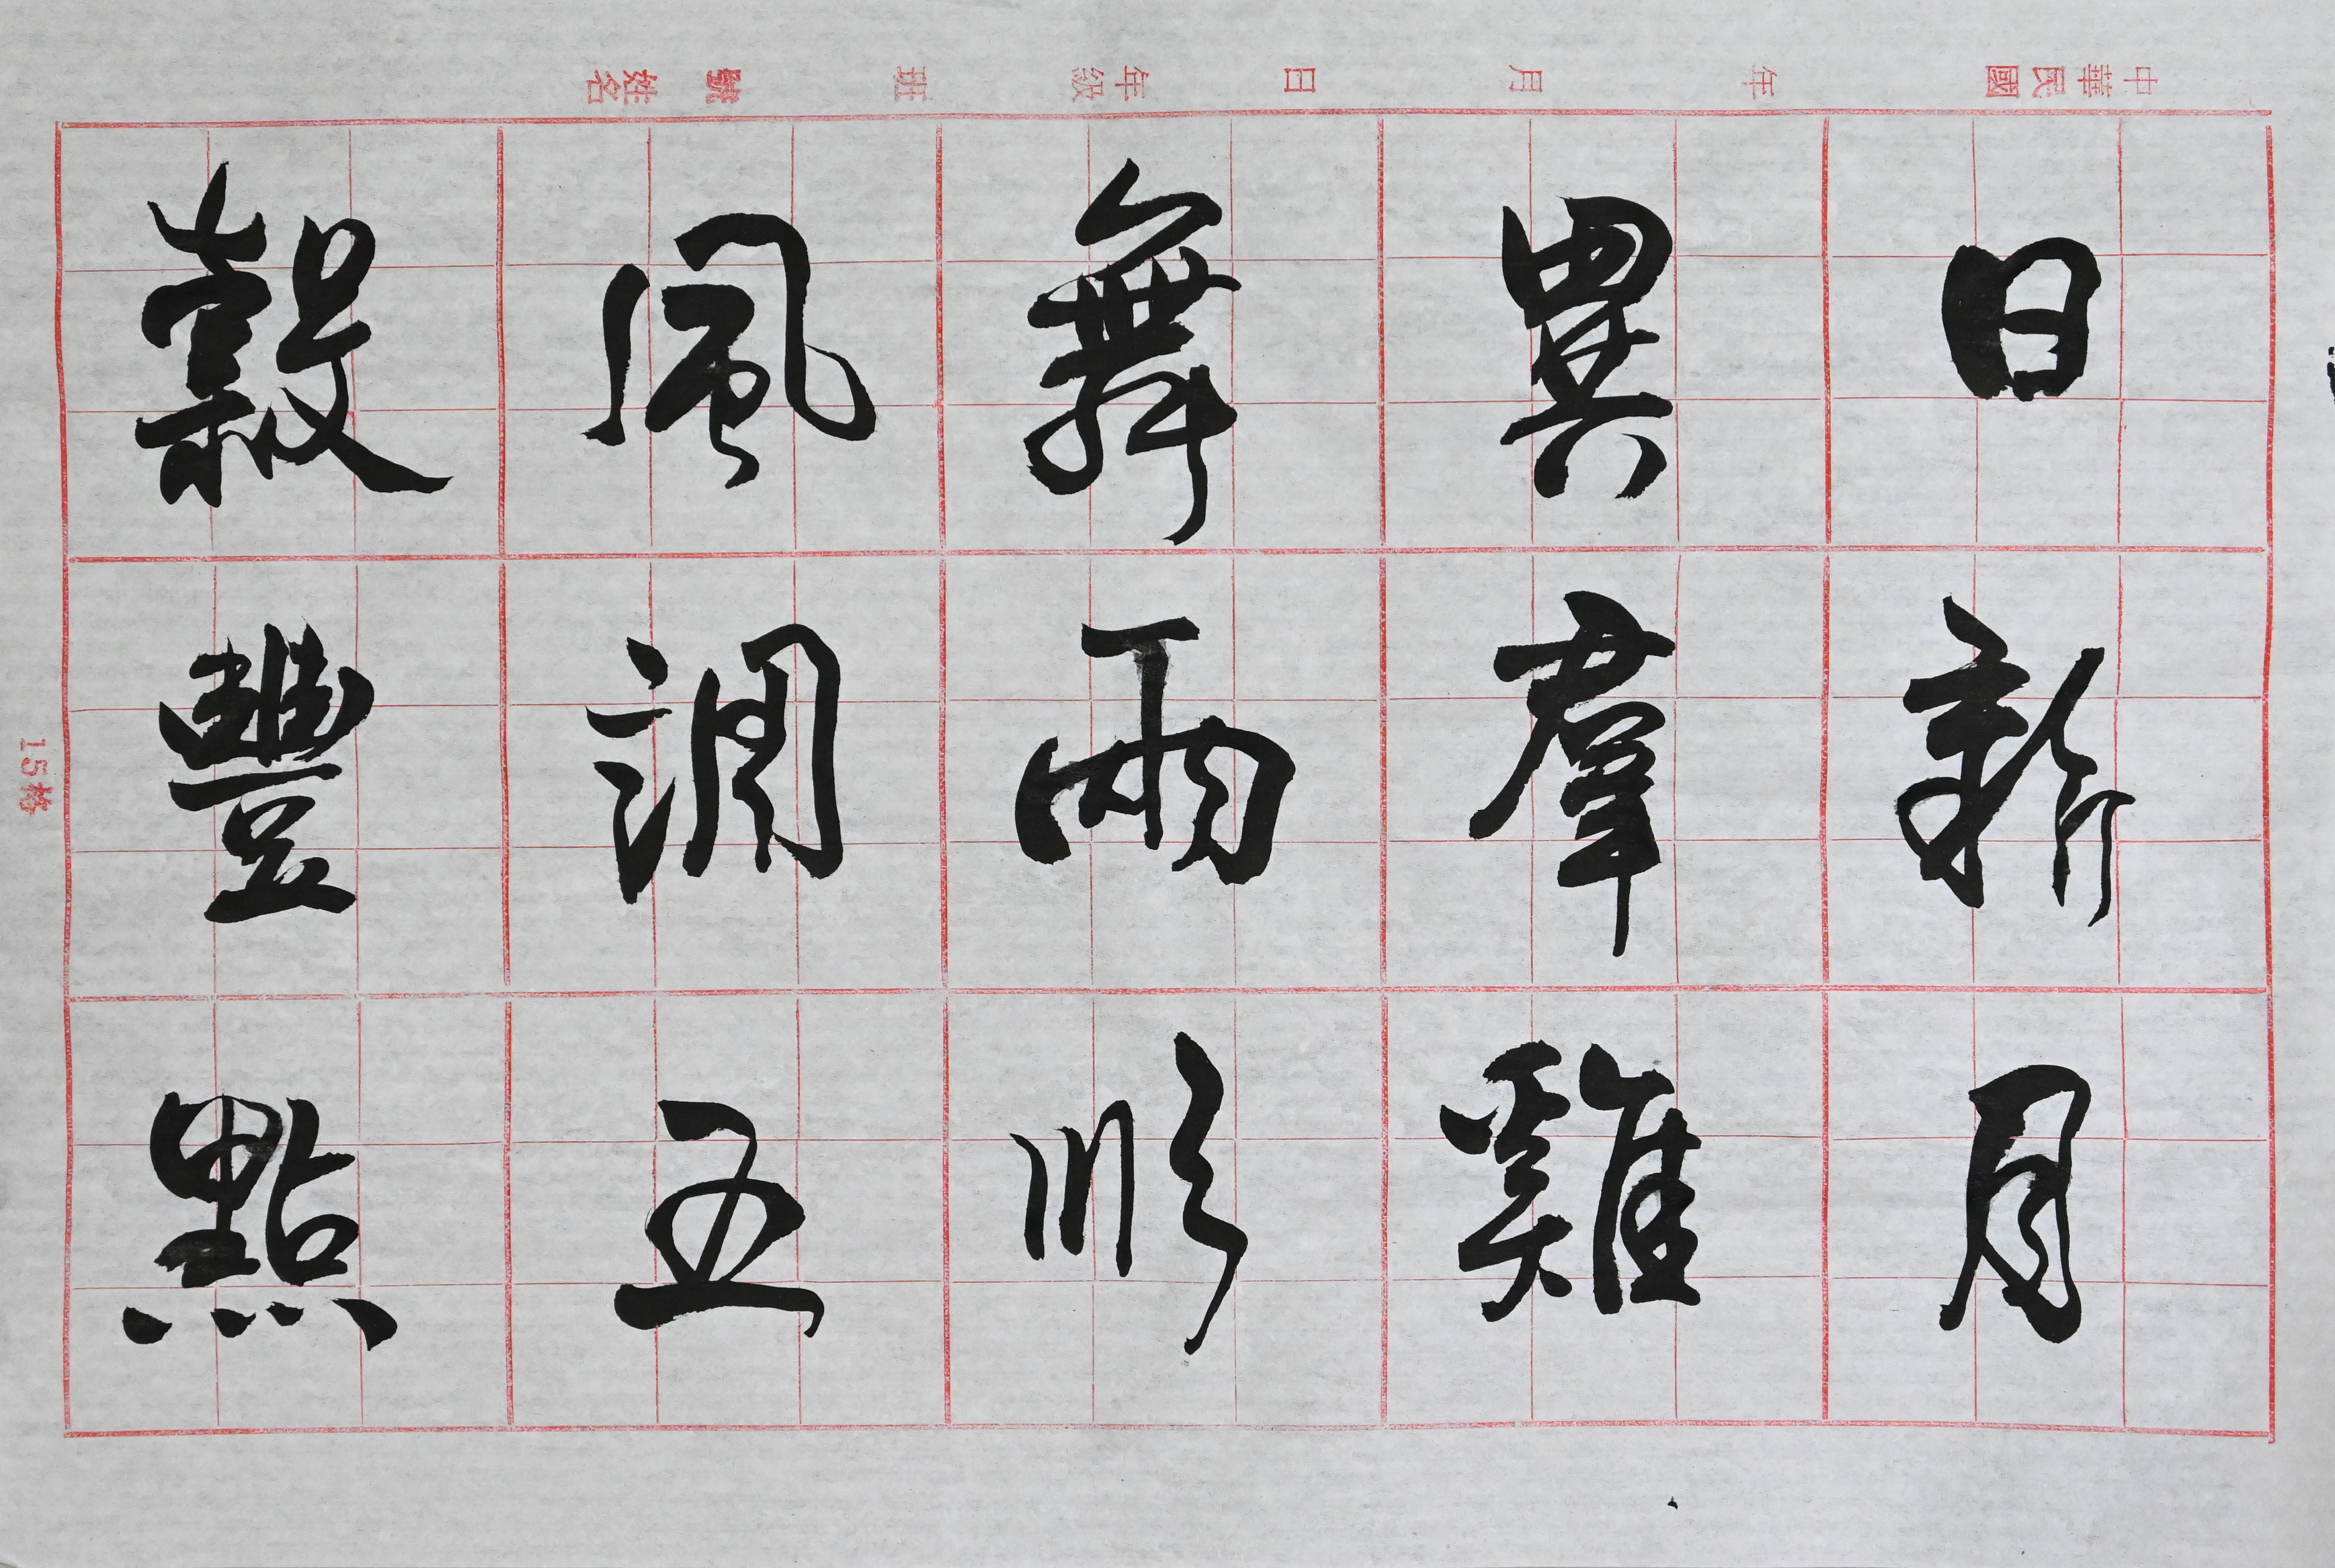 中華民國 年 月 日 年級 班 號 姓名
日新月
異羣雞
舞雨順
風調五
穀豐點
15格